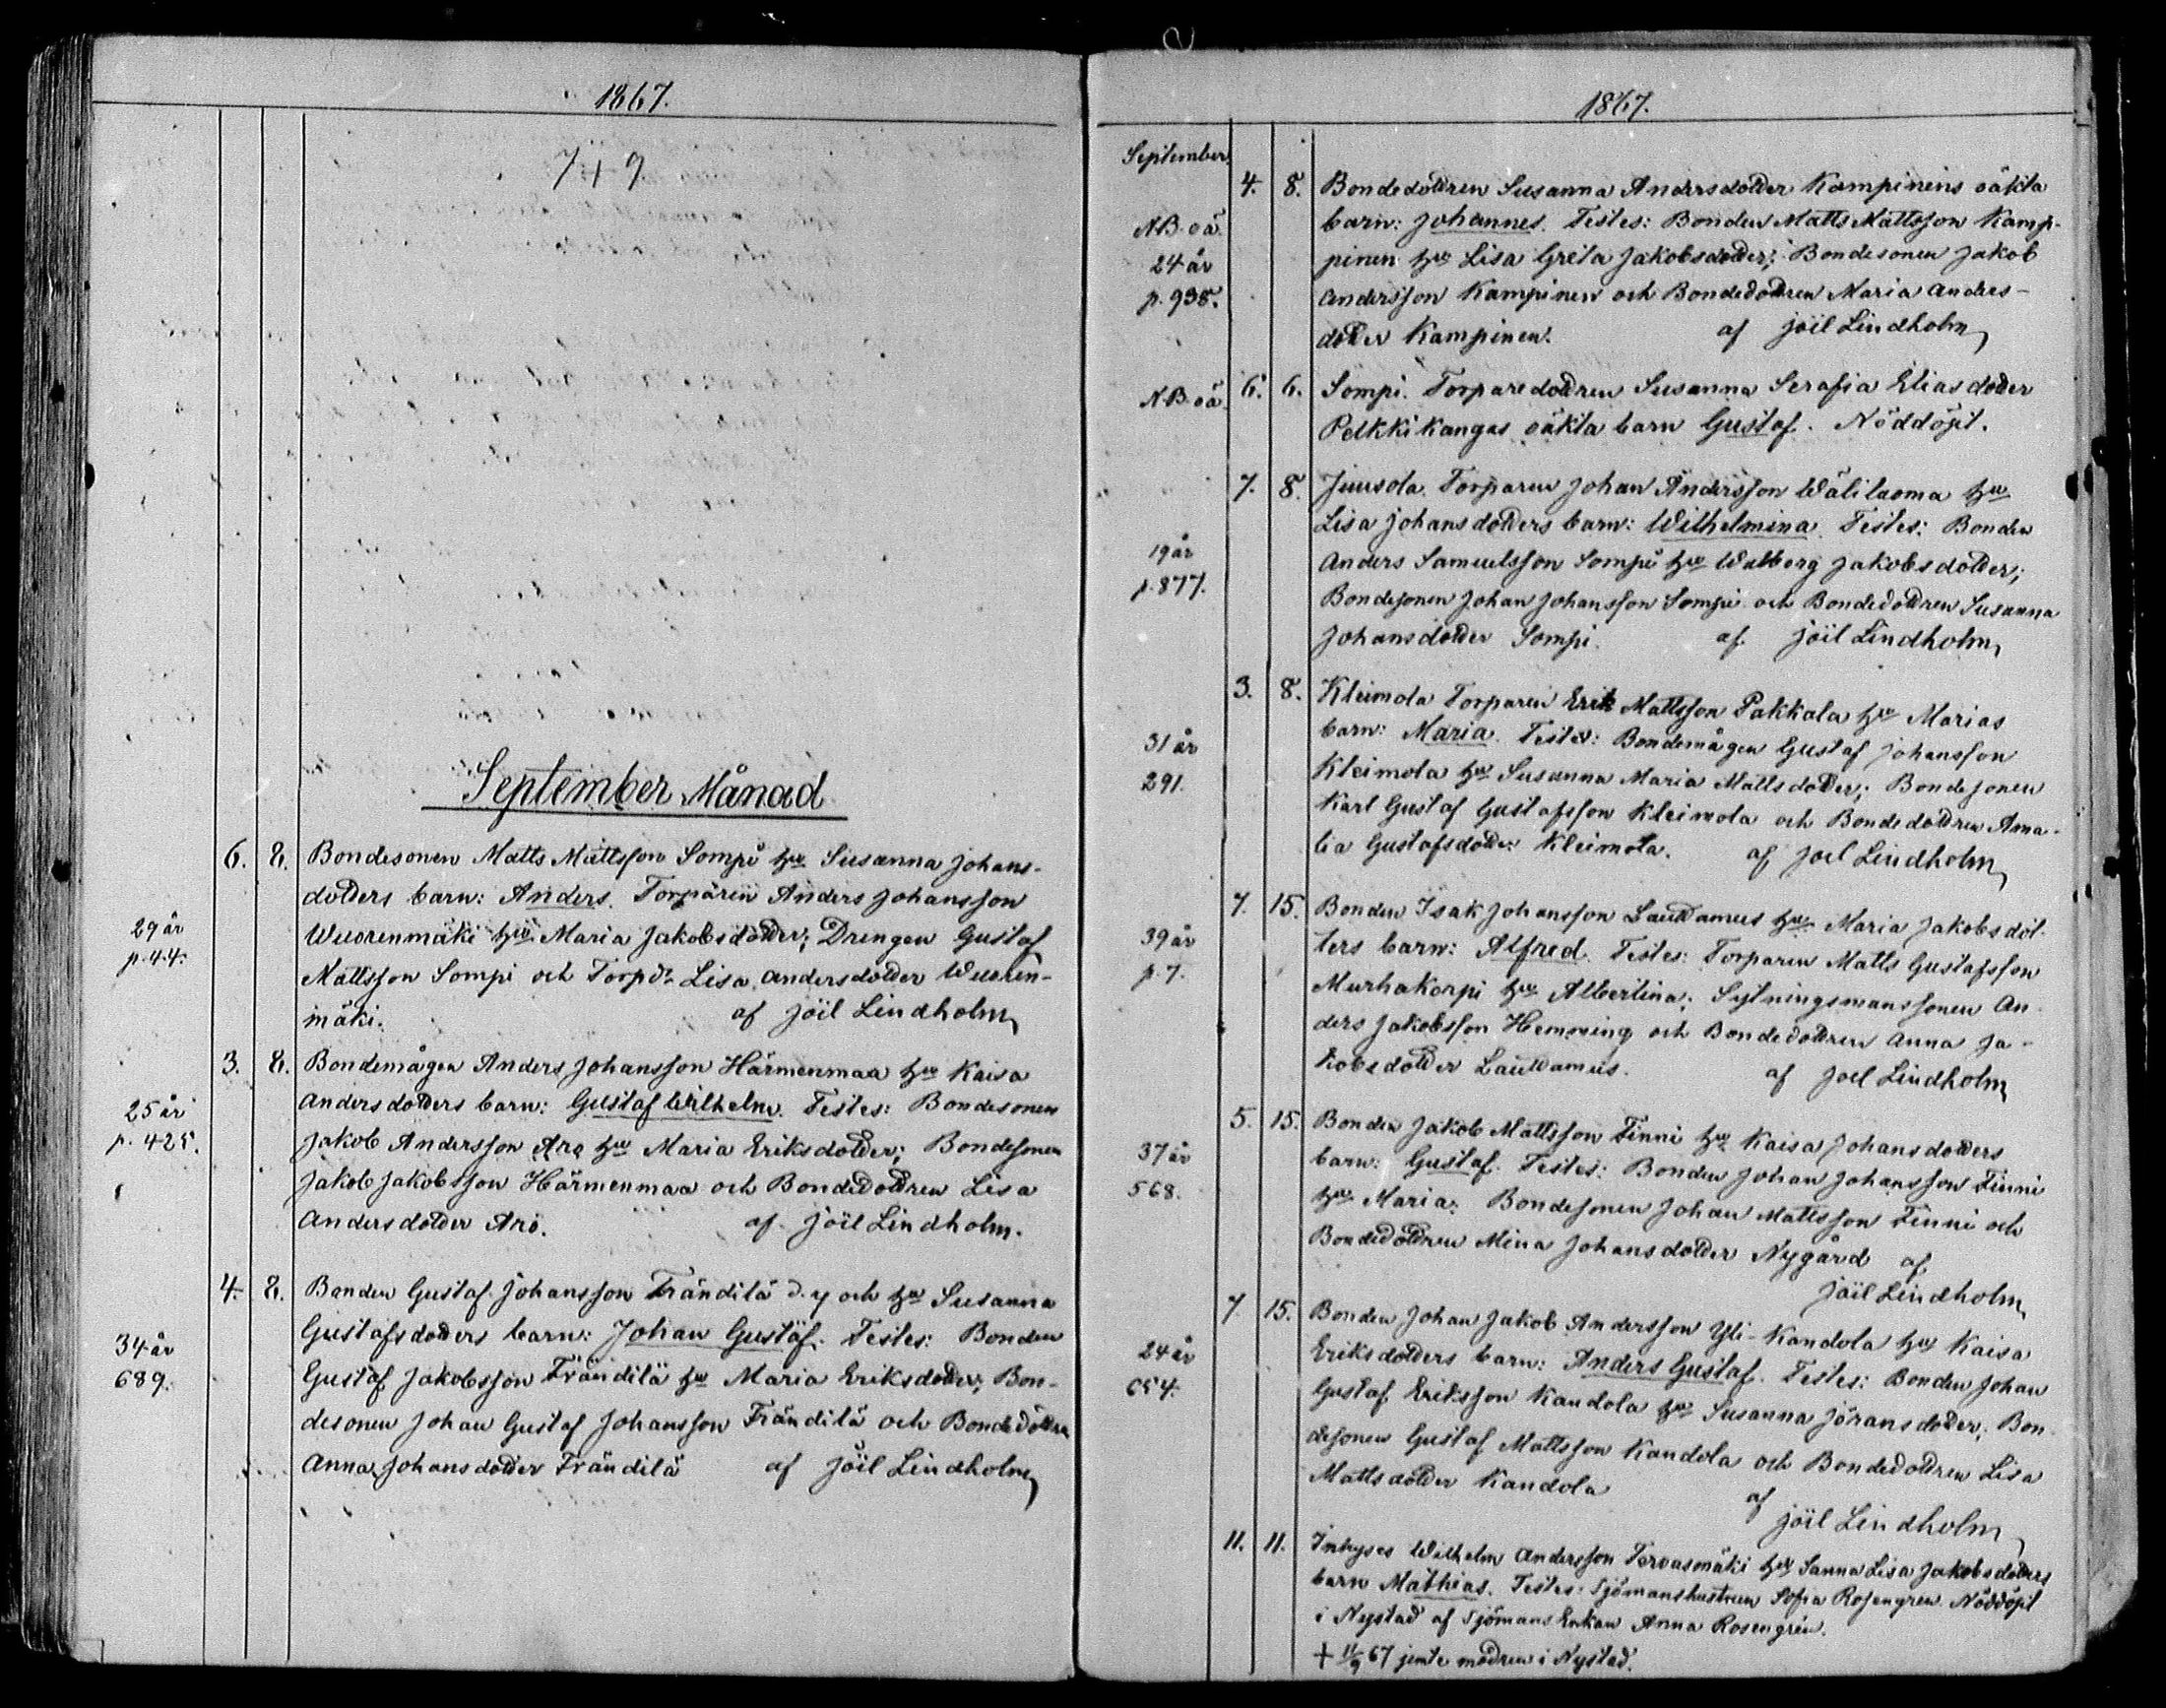 1867.
749
September Månad
6. 8. Bondesonen Matts Mattsson Sompi hu Susanna Johans-
dotters barn: Anders. Torparen Anders Johansson
29 år Wuorenmäki hu Maria Jakobsdotter; Drengen Gustaf
p. 44. Mattsson Sompi och Torpdr Lisa Andersdotter Wuoren-
mäki. af Joil Lindholm
3. 8. Bondemågen Anders Johansson Härmenmaa hu Kaisa
25 år Andersdotters barn: Gustaf Wilhelm. Testes: Bondesonen
p. 425. Jakob Andersson Aro hu Maria Eriksdotter; Bondesonen
Jakob Jakobsson Härmenmaa och Bondedottren Lisa
Andersdotter Aro. af Joil Lindholm.
4. 8. Bonden Gustaf Johansson Fränditä d. y och hu Susanna
Gustafsdotters barn: Johan Gustaf. Testes: Bonden
34 år
689. Gustaf Jakobsson Fränditä hu Maria Eriksdotter; Bon-
desonen Johan Gustaf Johansson Fränditä och Bondedottren
Anna Johansdotter Fränditä af Joil Lindholm
1867.
September
4. 8. Bondedottren Susanna Andersdotter Kampinens oäkta
NB. oä. barn: Johannes. Testes: Bonden Matts Mattsson Kamp-
24 år pinen hu Lisa Greta Jakobsdotter; Bondesonen Jakob
p. 938. Andersson Kampinen och Bondedottren Maria Anders-
dotter Kampinen. af Joil Lindholm
NB. oä. 6. 6. Sompi. Torparedottren Susanna Serafia Eliasdotter
Petkkikangas oäkta barn Gustaf. Nöddöpt.
7. 8. Juusola. Torparen Johan Andersson Wälilaoma hu
Lisa Johansdotters barn: Wilhelmina. Testes: Bonden
19 år Anders Samuelsson Sompi hu Walborg Jakobsdotter;
p. 877. Bondesonen Johan Johansson Sompi och Bondedottren Susanna
Johansdotter Sompi. af Joil Lindholm,
3. 8. Kleimola Torparen Erik Mattsson Pakkala hu Marias
31 år barn: Maria. Testes: Bondemågen Gustaf Johansson
291. Kleimola hu Susanna Maria Mattsdotter; Bondesonen
Karl Gustaf Gustafsson Kleimola och Bondedottren Ama-
lia Gustafsdotter Kleimola. af Joel Lindholm
7. 15. Bonden Isak Johansson Lauttamus hu Maria Jakobsdot-
39 år ters barn: Alfred. Testes: Torparen Matts Gustafsson
p. 7. Murhakorpi hu Albertina; Sytningsmanssonen An-
ders Jakobsson Hemming och Bondedottren Anna Ja-
kobsdotter Lauttamus. af Joel Lindholm
5. 15. Bonden Jakob Mattsson Finni hu Kaisa Johansdotters
37 år barn: Gustaf. Testes: Bonden Johan Johansson Finni
568. hu Maria; Bondesonen Johan Mattsson Finni och
Bondedottren Mina Johansdotter Nygård af
Joil Lindholm
7. 15. Bonden Johan Jakob Andersson Yli-Kandola hu Kaisa
24 år Eriksdotters barn: Anders Gustaf. Testes: Bonden Johan
654. Gustaf Eriksson Kandola hu Susanna Jöransdotter; Bon-
desonen Gustaf Mattsson Kandola och Bondedottren Lisa
Mattsdotter Kandola af
Joil Lindholm
11. 11. Inhyses Wilhelm Andersson Tervasmäki hu Sanna Lisa Jakobsdotters
barn Mathias. Testes: Sjömanshustrun Sofia Rosengren. Nöddöpt
i Nystad af Sjömans Enkan Anna Rosengren.
+ 11/9 67 jemte modren i Nystad.